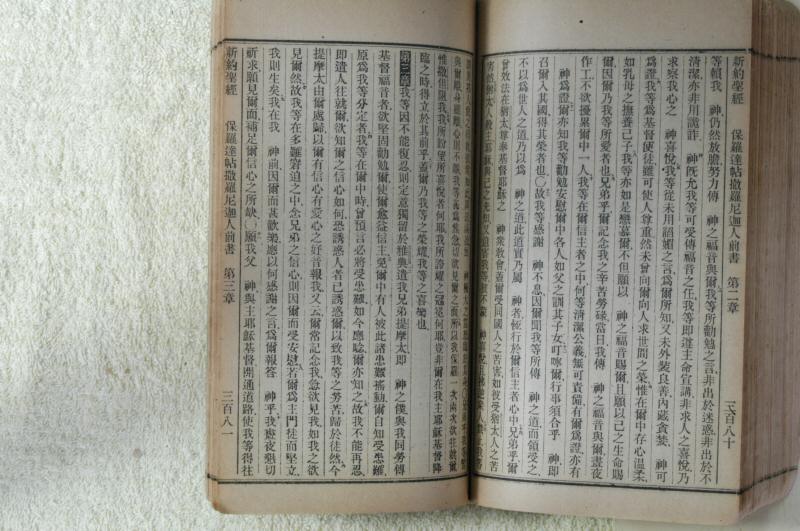 新約聖經 保羅達帖撒羅尼迦人前書 第二章 三百八十
等頼我 神仍然放膽努力傳 神之福音與爾我等所勸勉之言非出於迷惑非出於不
清潔亦非用譎詐 神旣允我等可受傳福音之任我等即遵主命宣講非求人之喜悅乃
求察我心之 神喜悅我等從未用諂媚之言爲爾所知又未外裝良善內藏貪婪 神可
爲證我等爲基督使徒雖可使人尊重然未曾向爾向人求世間之榮惟在爾中存心溫柔
如乳母之撫養己子我等亦如是戀慕爾不但願以 神之福音賜爾且願以己之生命賜
爾因爾乃我等所愛者也兄弟乎爾記念我之辛苦勞碌當日我傳 神之福音與爾晝夜
作工不欲擾累爾中一人我等在爾信主者之中何等清潔公義無可責備有爾爲證亦有
神爲證爾亦知我等勸勉安慰爾中各人如父之訓其子女叮嚀爾行事須合乎 神即
召爾入其國得其榮者也〇故我等感謝 神不息因爾聞我等所傳 神之道而領受之
不以爲世人之道乃以爲 神之道此道實乃屬 神者恆行於爾信主者心中兄弟乎爾
曾效法在猶太遵奉基督耶穌之 神衆敎會蓋爾受同國人之苦害如彼受猶太人之苦
與爾離身離心不離
惟撒但阻我我所盼望所喜悅者何耶我所誇耀之冠冕何耶豈非爾在我主耶穌基督降
臨之時得立於其前乎蓋爾乃我等之榮耀我等之喜樂也
第三章 我等因不能復忍則定意獨留於雅典遣我兄弟提摩太即 神之僕與我同勞傳
基督福音者欲堅固勸勉爾使爾愈益信主免爾中有人被此諸患難搖動爾自知受患難
原爲我等分定者我等在爾中時曾預言必將受患難如今應騐爾亦知之故我不能再忍
即遣人往就爾欲知爾之信心如何恐誘惑人者已誘惑爾以致我等之勞苦歸於徒然今
提摩太由爾處歸以爾有信心有愛心之好音報我又云爾常記念我急欲見我如我之欲
見爾然故我等在多難窘迫之中念兄弟之信心則因爾而受安慰若爾爲主門徒而堅立
我則生矣我在我 神前因爾而甚歡樂應以何感謝之言爲爾報答 神乎我晝夜懇切
祈求願見爾面補足爾信心之所缺〇願我父 神與主耶穌基督開通道路使我等得往
新約聖經 保羅達帖撒羅尼迦人前書 第三章 三百八一